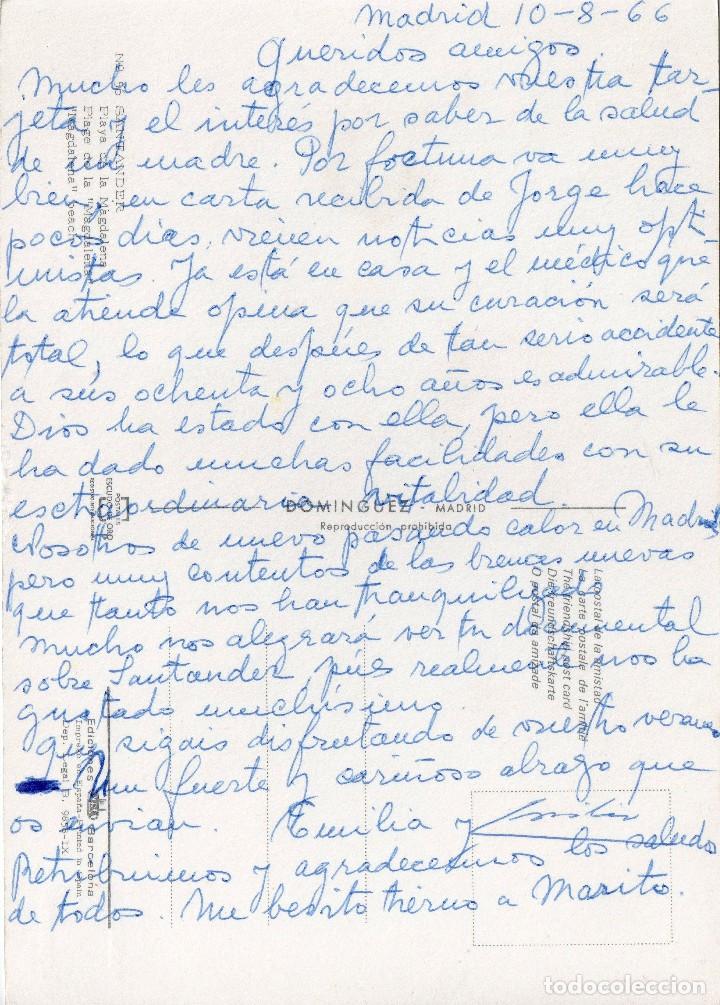 Madrid 10-8-66
Queridos amigos
Mucho les agradecemos vuestra tar-
jeta y el interés por saber de la salud
de mi madre. Por fortuna va muy
bien, en carta recibida de Jorge hace
pocos dias, vienen noticias muy opti-
mistas. Ya está en casa y el médico que
la atiende opina que su curación será
total, lo que despúes de tan serio accidente
a sus ochenta y ocho años es admirable.
Dios ha estado con ella, pero ella le
ha dado muchas facilidades con su
extraordinaria vitalidad.
Nosotros de nuevo pasando calor en Madrid
pero muy contentos de las buenas nuevas
que tanto nos han tranquilizado
Mucho nos alegrará ver tu documental
sobre Santander pués realmente nos ha
gustado muchísimo.
Que sigais disfrutando de vuestro verano
un fuerte y cariñoso abrazo que
os envian. Emilia y
Retribuimos y agradecemos los saludos
de todos. Un besito tierno a Marito.
Nº 56 SANTANDER
Playa de la Magdalena
Plage de la "Magdalena"
"Magdalena" beach
POSTALES
ESCUDO DE ORO
DOMINGUEZ - MADRID
Reproducción prohibida
La postal de la amistad
La carte postale de l'amitié
The friendship post card
Die Freundschaftskarte
O postal da amizade
Ediciones Barcelona
Impreso en España-Printed in Spain
Dep. Legal B.
todocoleccion.net